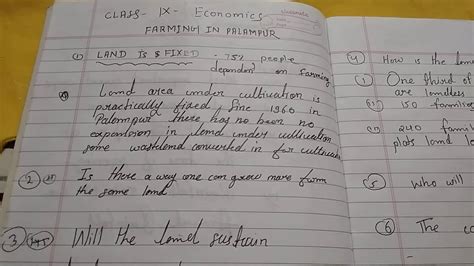 CLASS - IX - Economics
FARMING IN PALAMPUR
(1) LAND IS $ FIXED - 75% people
dependent on farming
Land area under cultivation is
practically fixed. Sinc 1960 in
Palampur there has no been no
expansion in land under cultivation
some wasteland converted in for
(2) Is there a way one can grow more furm
the some land
(3) Will the land sustain
(4) How is the
(i) One third of
are landless
(ii) 150 families
(iii) 240 families
plots land
(5) Who will
(6) The